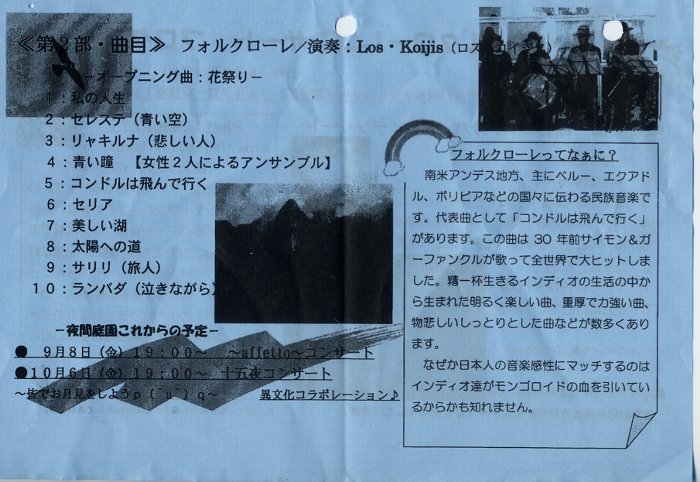 ≪第２部・曲目≫　フォルクローレ／演奏：Los・Koijis（ロス・コイジス）
－オープニング曲：花祭り－
１：私の人生
２：セレステ（青い空）
３：リャキルナ（悲しい人）
４：青い瞳　【女性２人によるアンサンブル】
５：コンドルは飛んで行く
６：セリア
７：美しい湖
８：太陽への道
９：サリリ（旅人）
１０：ランバダ（泣きながら）
－夜間庭園これからの予定－
●　９月８日（金）１９：００～　～affetto～コンサート
●１０月６日（金）１９：００～　十五夜コンサート
～皆でお月見をしようｐ（＾ｕ＾）ｑ～　異文化コラボレーション♪
フォルクローレってなぁに？
南米アンデス地方、主にペルー、エクアド
ル、ボリビアなどの国々に伝わる民族音楽で
す。代表曲として「コンドルは飛んで行く」
があります。この曲は 30 年前サイモン＆ガ
ーファンクルが歌って全世界で大ヒットしま
した。精一杯生きるインディオの生活の中か
ら生まれた明るく楽しい曲、重厚で力強い曲、
物悲しいしっとりとした曲などが数多くあり
ます。
なぜか日本人の音楽感性にマッチするのは
インディオ達がモンゴロイドの血を引いてい
るからかも知れません。